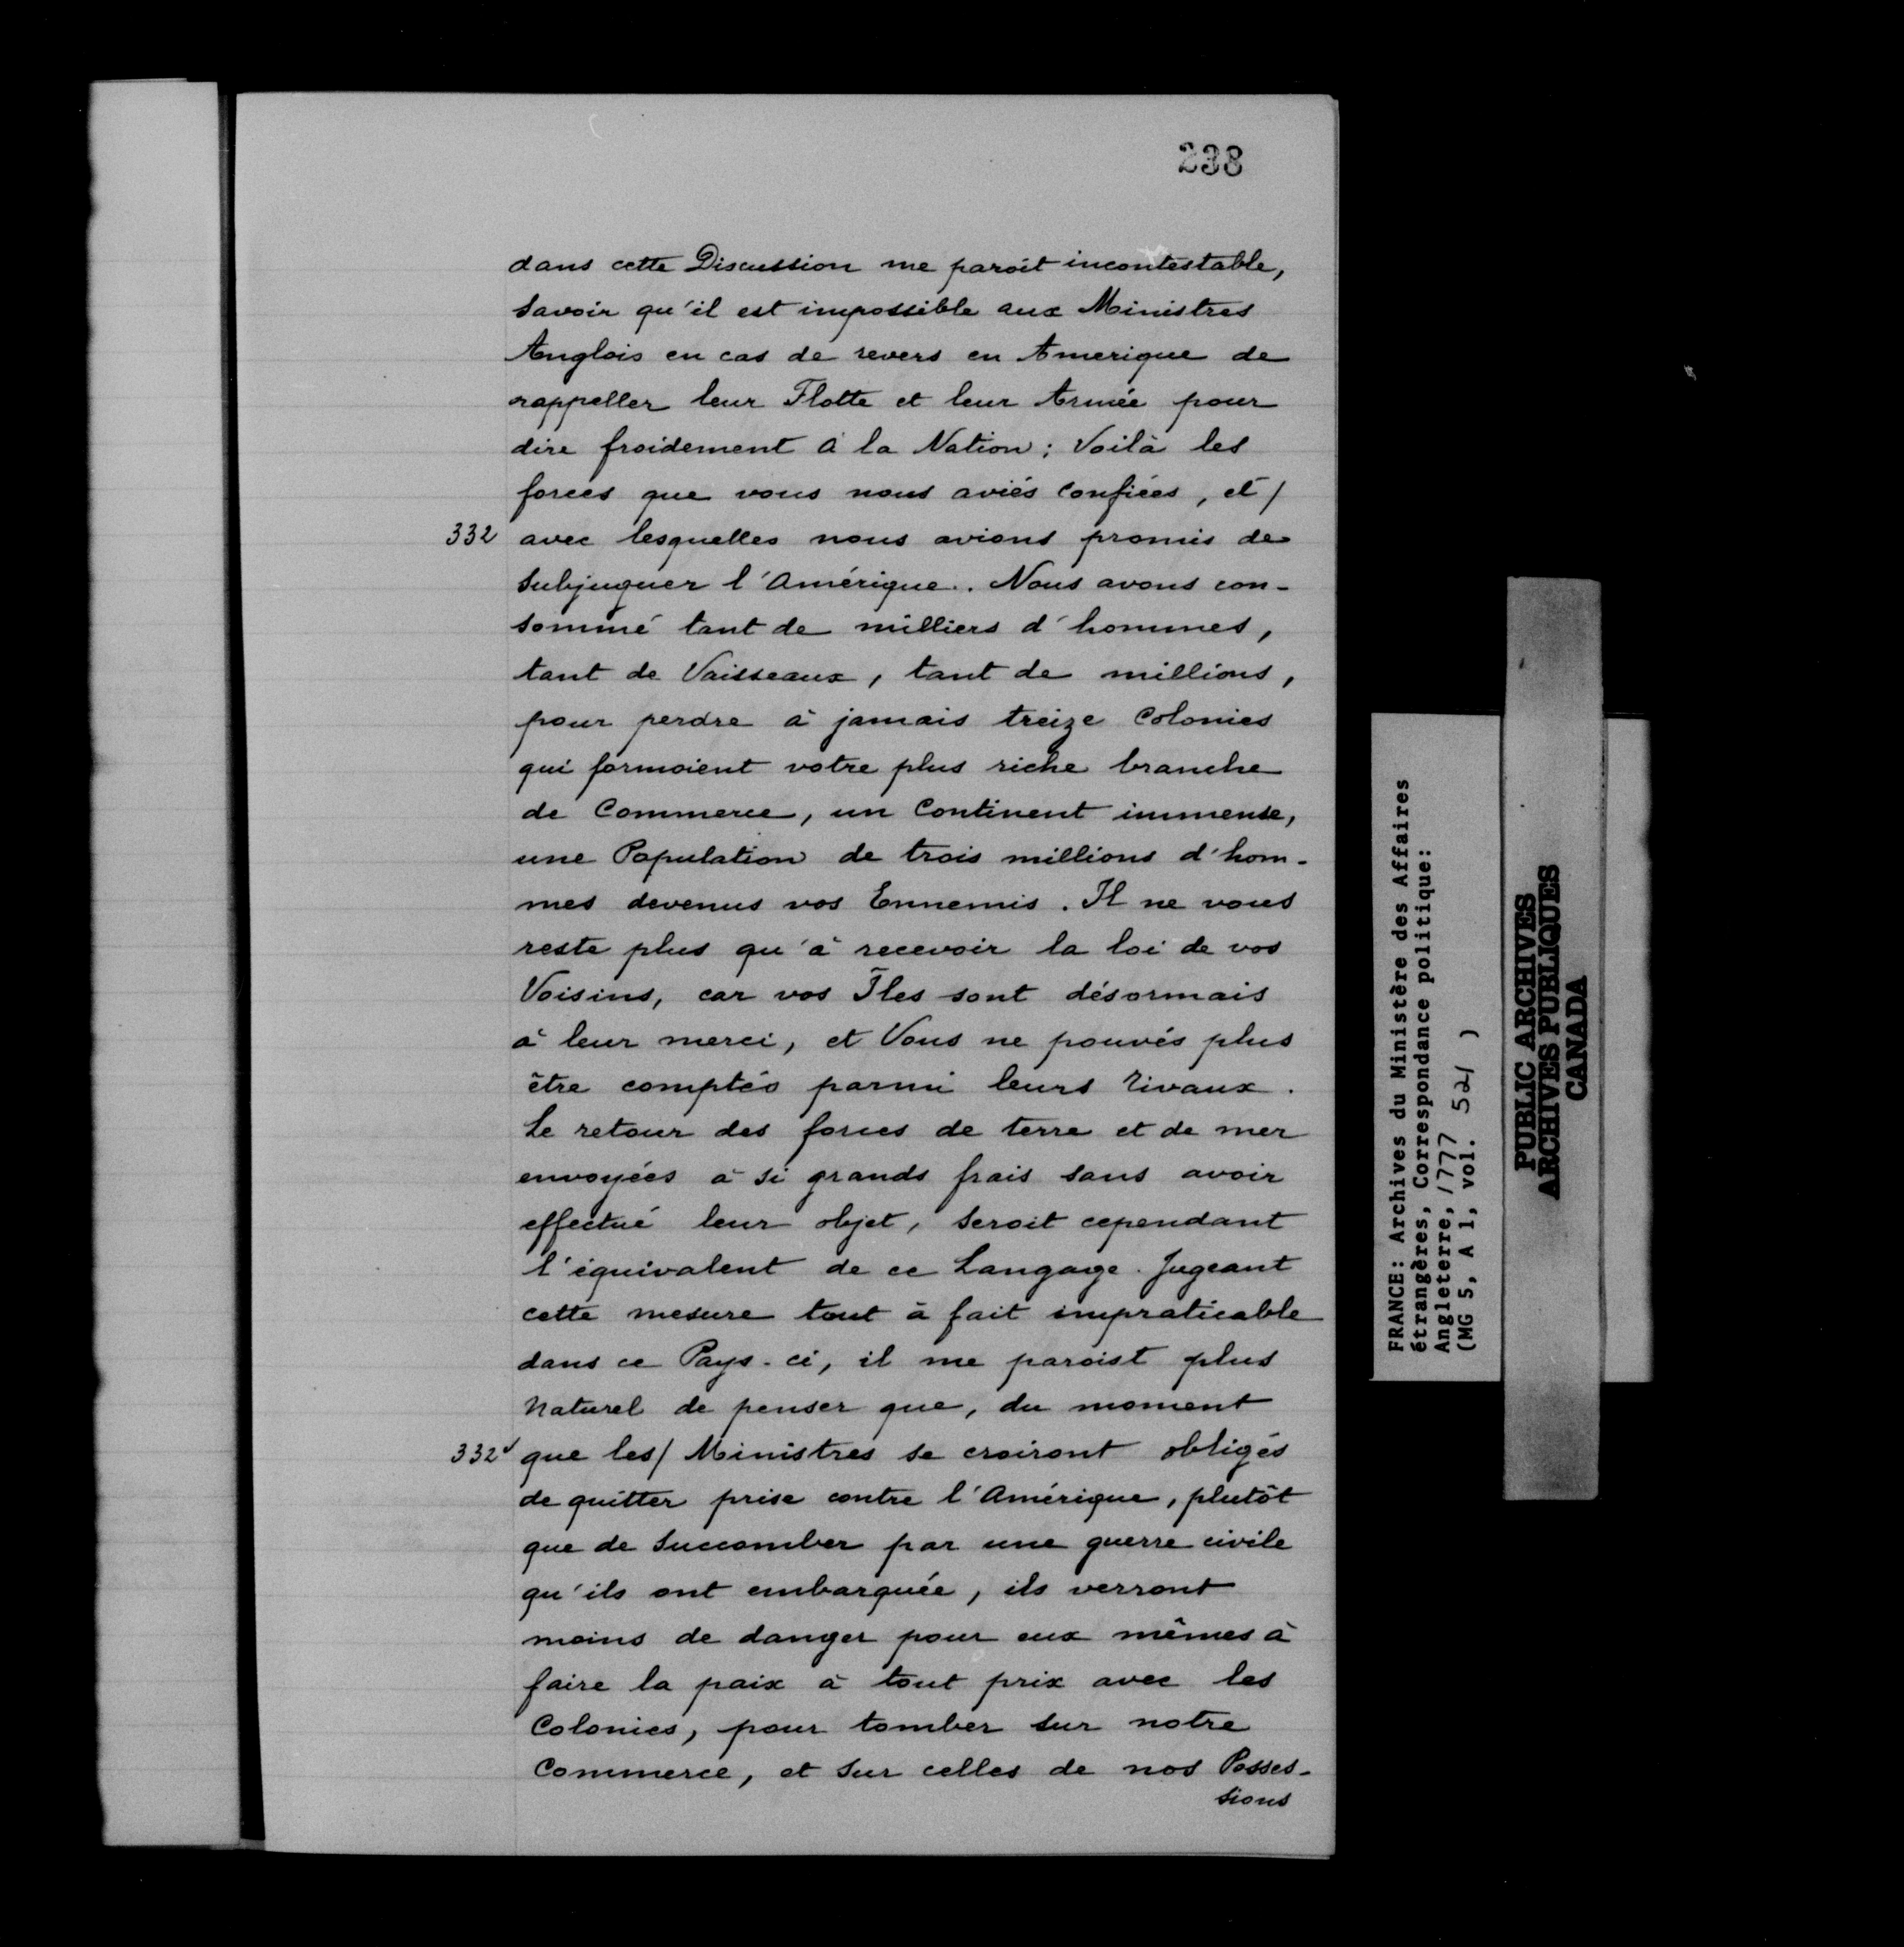 238
dans cette Discussion me paroît incontestable,
savoir qu'il est impossible aux Ministres
Anglois en cas de revers en Amerique de
rappeller leur Flotte et leur Armée pour
dire froidement à la Nation; Voilà les
forces que vous nous aviés confiées, et /
332 avec lesquelles nous avions promis de
subjuguer l'Amérique. Nous avons con-
sommé tant de milliers d'hommes,
tant de Vaisseaux, tant de millions,
pour perdre à jamais treize Colonies
qui formoient votre plus riche branche
de Commerce, un Continent immense,
une Population de trois millions d'hom-
mes devenus vos Ennemis. Il ne vous
reste plus qu'à recevoir la loi de vos
Voisins, car vos Îles sont désormais
à leur merci, et Vous ne pouvés plus
être comptés parmi leurs rivaux.
Le retour des forces de terre et de mer
envoyées à si grands frais sans avoir
effectué leur objet, seroit cependant
l'équivalent de ce Langage. Jugeant
cette mesure tout à fait impraticable
dans ce Pays-ci, il me paroist plus
naturel de penser que, du moment
332v que les/ Ministres se croiront obligés
de quitter prise contre l'Amérique, plutôt
que de succomber par une guerre civile
qu'ils ont embarquée, ils verront
moins de danger pour eux mêmes à
faire la paix à tout prix avec les
Colonies, pour tomber sur notre
Commerce, et sur celles de nos Posses-
sions
FRANCE: Archives du Ministère des Affaires
étrangères, Correspondance politique:
Angleterre, 1777
(MG 5, A 1, vol. 521 )
PUBLIC ARCHIVES
ARCHIVES PUBLIQUES
CANADA